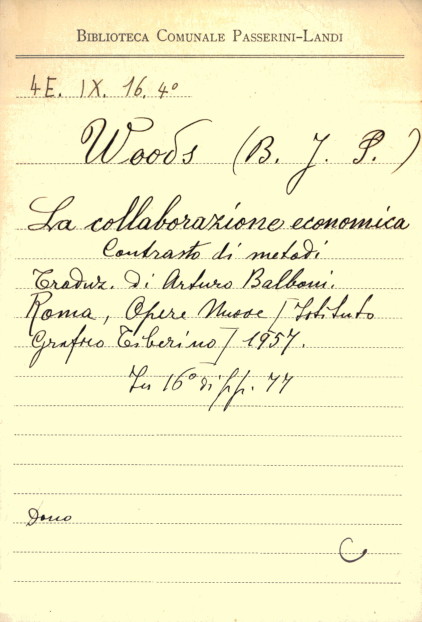 BIBLIOTECA COMUNALE PASSERINI-LANDI
4E. IX. 16. 4º
Woods (B. J. P.)
La collaborazione economica
Contrasto di metodi
Traduz. di Arturo Balboni.
Roma, Opere Nuove [Istituto
Grafico Tiberino] 1957.
In 16º di pp. 77
Dono
C